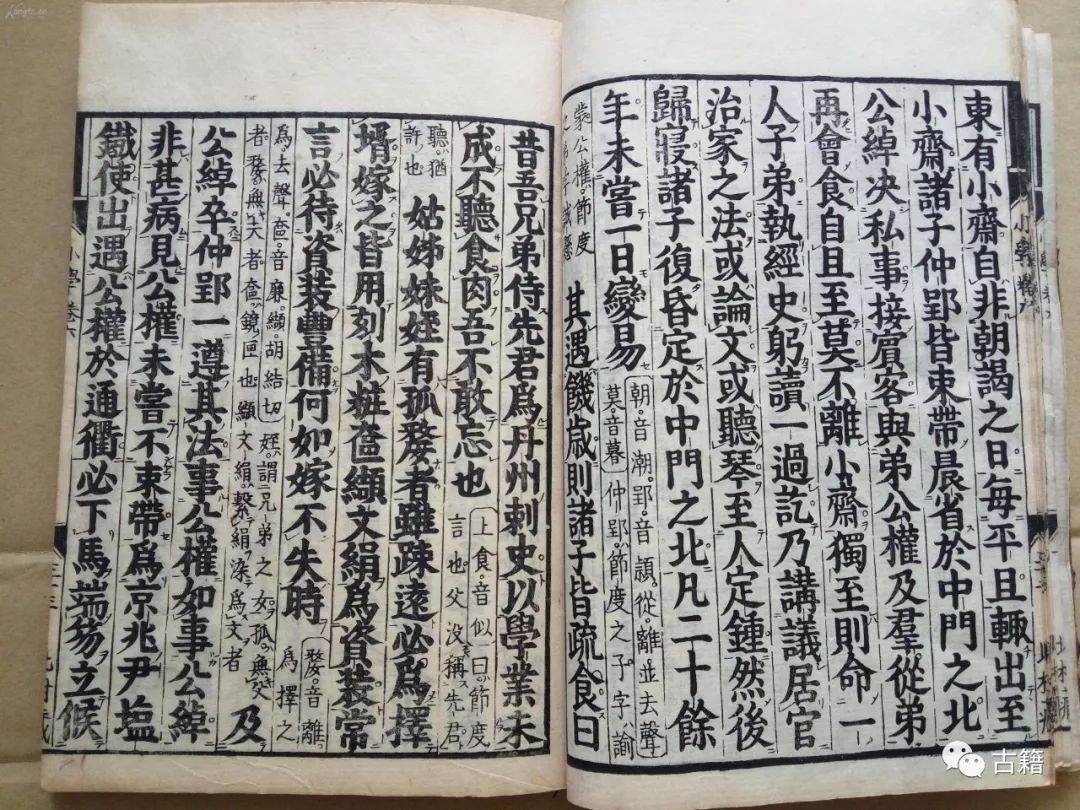 東有小齋自非朝謁之日每平旦輒出至
小齋諸子仲郢皆束帶晨省於中門之北
公綽決私事接賓客與弟公權及羣從弟
再會食自旦至莫不離小齋獨至則命一
人子弟執經史躬讀一過訖乃講議居官
治家之法或論文或聽琴至人定鍾然後
歸寢諸子復昏定於中門之北凡二十餘
年未嘗一日變易
朝音潮郢音頴從離並去聲
莫音暮仲郢節度之子字諭
蒙公權節度
之弟字誠懸
其遇饑歲則諸子皆疏食曰
昔吾兄弟侍先君爲丹州刺史以學業未
成不聽食肉吾不敢忘也
上食音似曰節度
言也父没稱先君
聽猶
許也
姑姊妹姪有孤嫠者雖疎遠必爲擇
壻嫁之皆用刻木粧奩纈文絹爲資裝常
言必待資裝豐備何如嫁不失時
嫠音離
爲擇之
爲去聲奩音廉纈胡結切姪謂兄弟之女孤無父
者嫠無夫者奩鏡匣也纈文絹繫絹染爲文者
及
公綽卒仲郢一遵其法事公權如事公綽
非甚病見公權未嘗不束帶爲京兆尹塩
鐵使出遇公權於通衢必下馬端笏立候
小學卷六
古籍